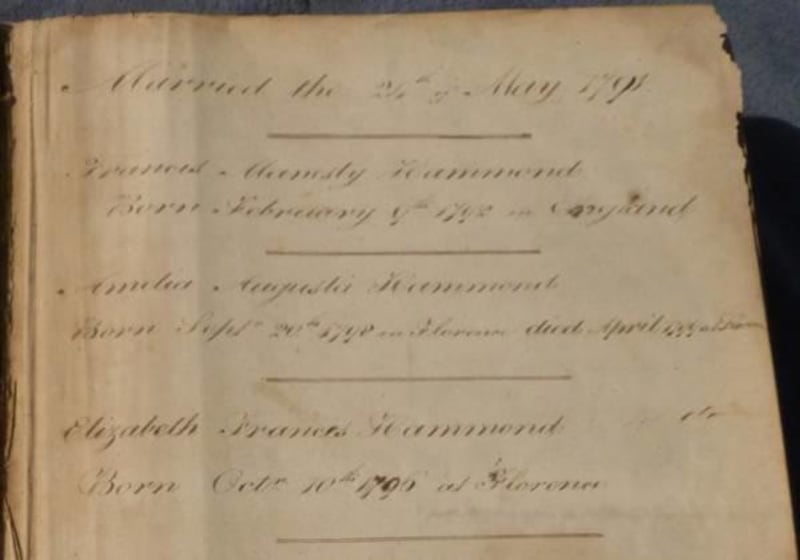 Married the 24th of May 1791
Francis Hammond
Born February 9th 1792 in England
Amelia Augusta Hammond
Born Septr 20th in Florence died April
Elizabeth Frances Hammond
Born Octr 10th 1796 at Florence